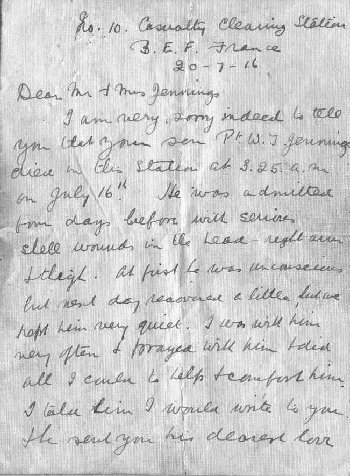 No. 10. Casualty Clearing Station
B. E. F. France
20-7-16
Dear Mr & Mrs Jennings
I am very sorry indeed to tell
you that your son Pt. W. J. Jennings
died in this Station at 3.25 a.m
on July 16th. He was admitted
four days before with serious
shell wounds in the head - right arm
& thigh. At first he was unconscious
but next day recovered a little, but we
kept him very quiet. I was with him
very often & prayed with him & did
all I could to help & comfort him.
I told him I would write to you.
He sent you his dearest love